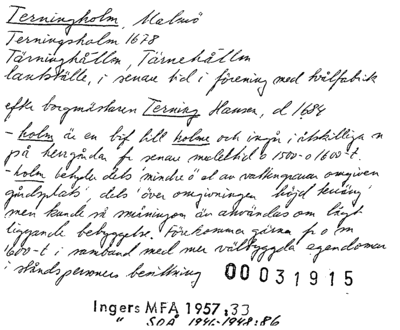 Terningholm, Malmö
Terningsholm 1678
Tärninghållm, Tärnehållm
lantställe, i senare tid i förening med
efter borgmästaren Terning Hansen, d 1684
-holm är en bif till holme och ingår i åtskilliga n
på herrgårdar fr senare medeltid o 1500- o 1600-t.
-holm betyder dels mindre ö el av vattengravar omgiven
gårdsplats, dels över omgivningen höjd
men kunde så småningom än användas om lågt
liggande bebyggelse. Förekommer gärna fr o m
1600-t i samband med mer välbyggda egendomar
i ståndspersoners besittning
00031915
Ingers MFÅ 1957:33
" SOÅ 1946-1948:86